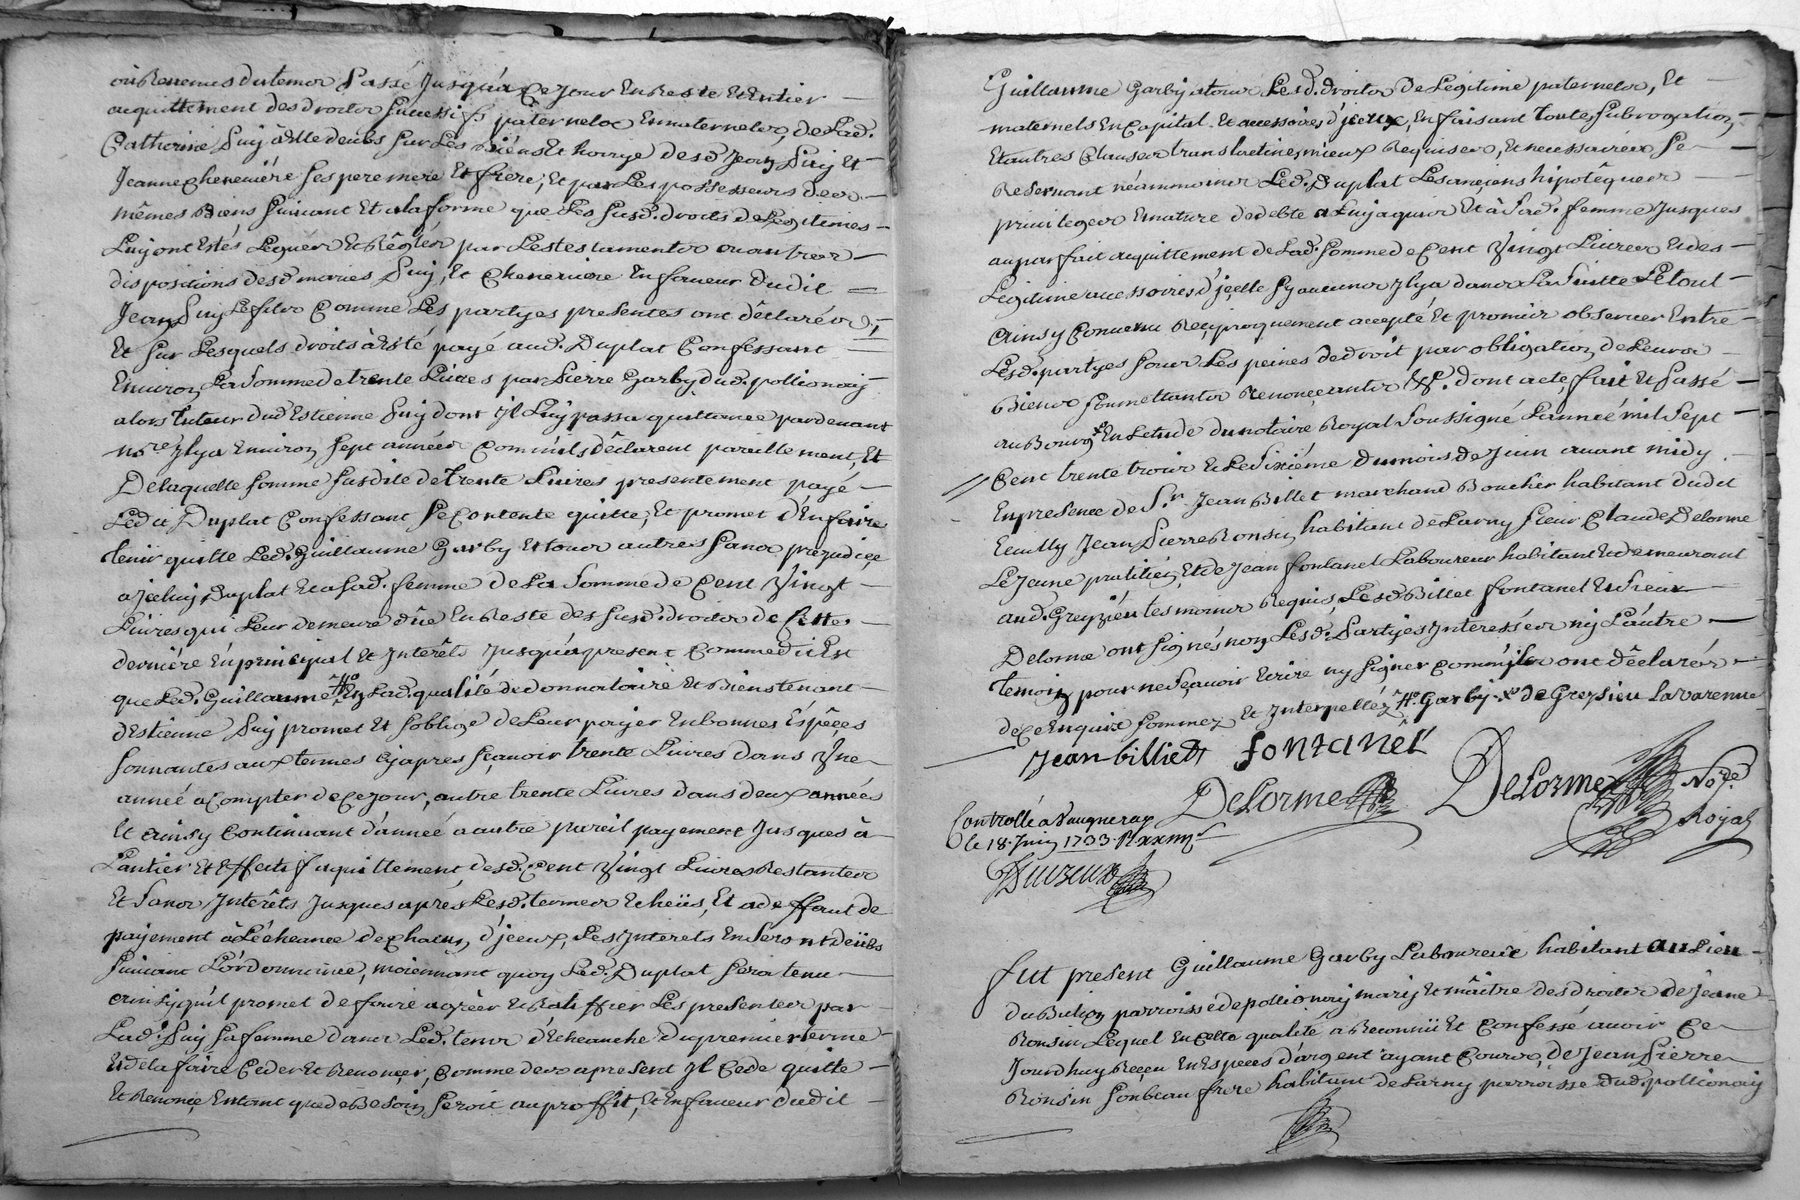 ou Revenus du temps Passé Jusqu'à Ce Jour En Reste Et Entier
acquittement des droits Successifs paternels Et maternels, de Lad.
Catherine Suy à Elle deübs Sur Les Biens Et hoirye desd Jean Suy Et
Jeanne Cheneviére Ses pere mere Et frere, Et par Les possesseurs des
mêmes Biens Suivant Et a la forme que Les Susd. droits de Legitimes
Luy ont Estés Leguer Et Règlés par Les testaments ou autres
dispositions desd mariés Suy, Et Cheneviere En faveur dudit
Jean Suy Le fils Comme Les partyes presentes ont dêclarés,
Et Sur Lesquels droits à Esté payé aud. Duplat Confessant
Environ La Somme de trente Livres par Pierre Garby dud. pollionay
alors tuteur dud Estienne Suy dont Jl Luy passa quittance pardevant
nore Jlya Environ Sept années Comm'ils dêclarent pareillement, Et
De laquelle Somme Susdite de trente Livres presentement payé
Ledit Duplat Confessant Se Contente quitte, Et promet d'En faire
tenir quitte Led. Guillaume Garby Et tous autres Sans prejudice
a jceluy Duplat Et a Sad. femme de La Somme de Cent Vingt
Livres qui Leur demeure dûe En Reste des Susd. droits de Cette
derniére En principal Et Jnterêts Jusqu'à present Comme dit Est
que Led. Guillaume En Lad. qualité de donnataire Et Bienstenant
d'Estienne Suy promet Et S'oblige de Leur payer En bonnes Espêces
Sonnantes aux termes Cy apres Sçavoir trente Livres dans Une
année a Compter de Ce Jour, autre trente Livres dans deux années
Et ainsy Continuant d'année a autre pareil payement Jusques à
L'antier Et Effectif aquittement, desd. Cent Vingt Livres Restantes
Et Sans Jnterêts Jusques aprés Lesd. termes Echeüs, Et a deffaut de
payement à L'écheance de Chacun, d'jceux, Les Jnterets En Seront deübs
Suivant L'ordonnance, moiennant quoy Led. Duplat Sera tenu
ainsy qu'il promet de faire agrêer Et Ratiffier Les presentes par
Lad. Suy Sa femme dans Led. tems d'Echeanche du premier terme
Et de la faire Ceder Et Renonçer, Comme des apresent Jl Cede quitte
Et Renonçe Entant que de Besoin Seroit au proffit, Et En faveur dudit
Guillaume Garby a tous Lesd. droits De Legitime paternels, Et
maternels En Capital Et accessoires d'jceux, En faisant toutes Subrogation,
Et autres Clauses translatives, mieux Requises, Et necessaires Se
Reservant néammoins Led. Duplat Les ançiens hipotêques
privileges Et nature de debte a Luy aquis Et à Sad. femme Jusques
au parfait aquittement de Lad. Somme de Cent Vingt Livres Et des
Legitime accessoires d'jçelle Sy aucuns Jl y a dans La Suitte Le tout
ainsy Convenu Reciproquement accepté Et promis observer Entre
Lesd. partyes Sous Les peines de droit par obligation, de Leurs
Biens Soumettants Renonçeants &c. dont acte, fait Et Passé
au Bourg En L'etude du notaire Royal Soussigné L'année mil Sept
Cent trente trois Et Le Dixiéme du mois de Juin avant midy
En presence de Sr Jean Billet marchand Boucher habitant dudit
Jean Pierre Ronsin, habitant de Larny Sieur Claude Delorme
Le Jeune pratitien, Et de Jean fontanel Laboureur habitant Et demeurant
aud. Greyzieu tesmoins Requis, Lesd Billet fontanel Et Sieur
Delorme ont signés non Lesd. Partyes Jnteressées ny L'autre
temoin pour ne Sçavoir Ecrire ny Signer Comm'ils ont dêclarés
de Ce Enquis Sommez Et Jnterpellés Garby de Greysieu Lavarenne
Jean billiet fontanel
Delorme Delorme Nore
Royal
Controllé a Vaugneray
le 18. Juin 1733
fut present Guillaume Garby Laboureur habitant au Lieu
parroisse de pollionay mary Et maître des droits de Jeane
Ronsin Lequel En Cette qualité a Reconnü Et Confessé avoir Ce
Jourdhuy Reçeu En Especes d'argent ayant Cours, de Jean Pierre
Ronsin Son beau frere habitant de Larny parroisse dud. pollionay